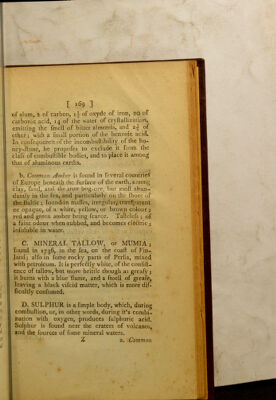 [ 169 ]
of alum, 2 of carbon, 1½ of oxyde of iron, 20 of
carbonic acid, 14 of the water of crystallization,
emitting the smell of bitter almonds, and 2½ of
ether; with a small portion of the benzoic acid.
In consequence of the incombustibility of the ho-
ney-stone, he proposes to exclude it from the
class of combustible bodies, and to place it among
that of aluminous earths.
b. Common Amber is found in several countries
of Europe beneath the surface of the earth, among
clay, sand, and the iron bog-ore, but most abun-
dantly in the sea, and particularly on the shore of
the Baltic; found in masses, irregular, transparent
or opaque, of a white, yellow, or brown colour;
red and green amber being scarce. Tasteless; of
a faint odour when rubbed, and becomes electric;
insoluble in water.
C. MINERAL TALLOW, or MUMIA;
found in 1736, in the sea, on the coast of Fin-
land; also in some rocky parts of Persia, mixed
with petroleum. It is perfectly white, of the consist-
ence of tallow, but more brittle though as greasy;
it burns with a blue flame, and a smell of grease,
leaving a black viscid matter, which is more dif-
ficultly consumed.
D. SULPHUR is a simple body, which, during
combustion, or, in other words, during it's combi-
nation with oxygen, produces sulphuric acid.
Sulphur is found near the craters of volcanos,
and the sources of some mineral waters.
Z a. Common